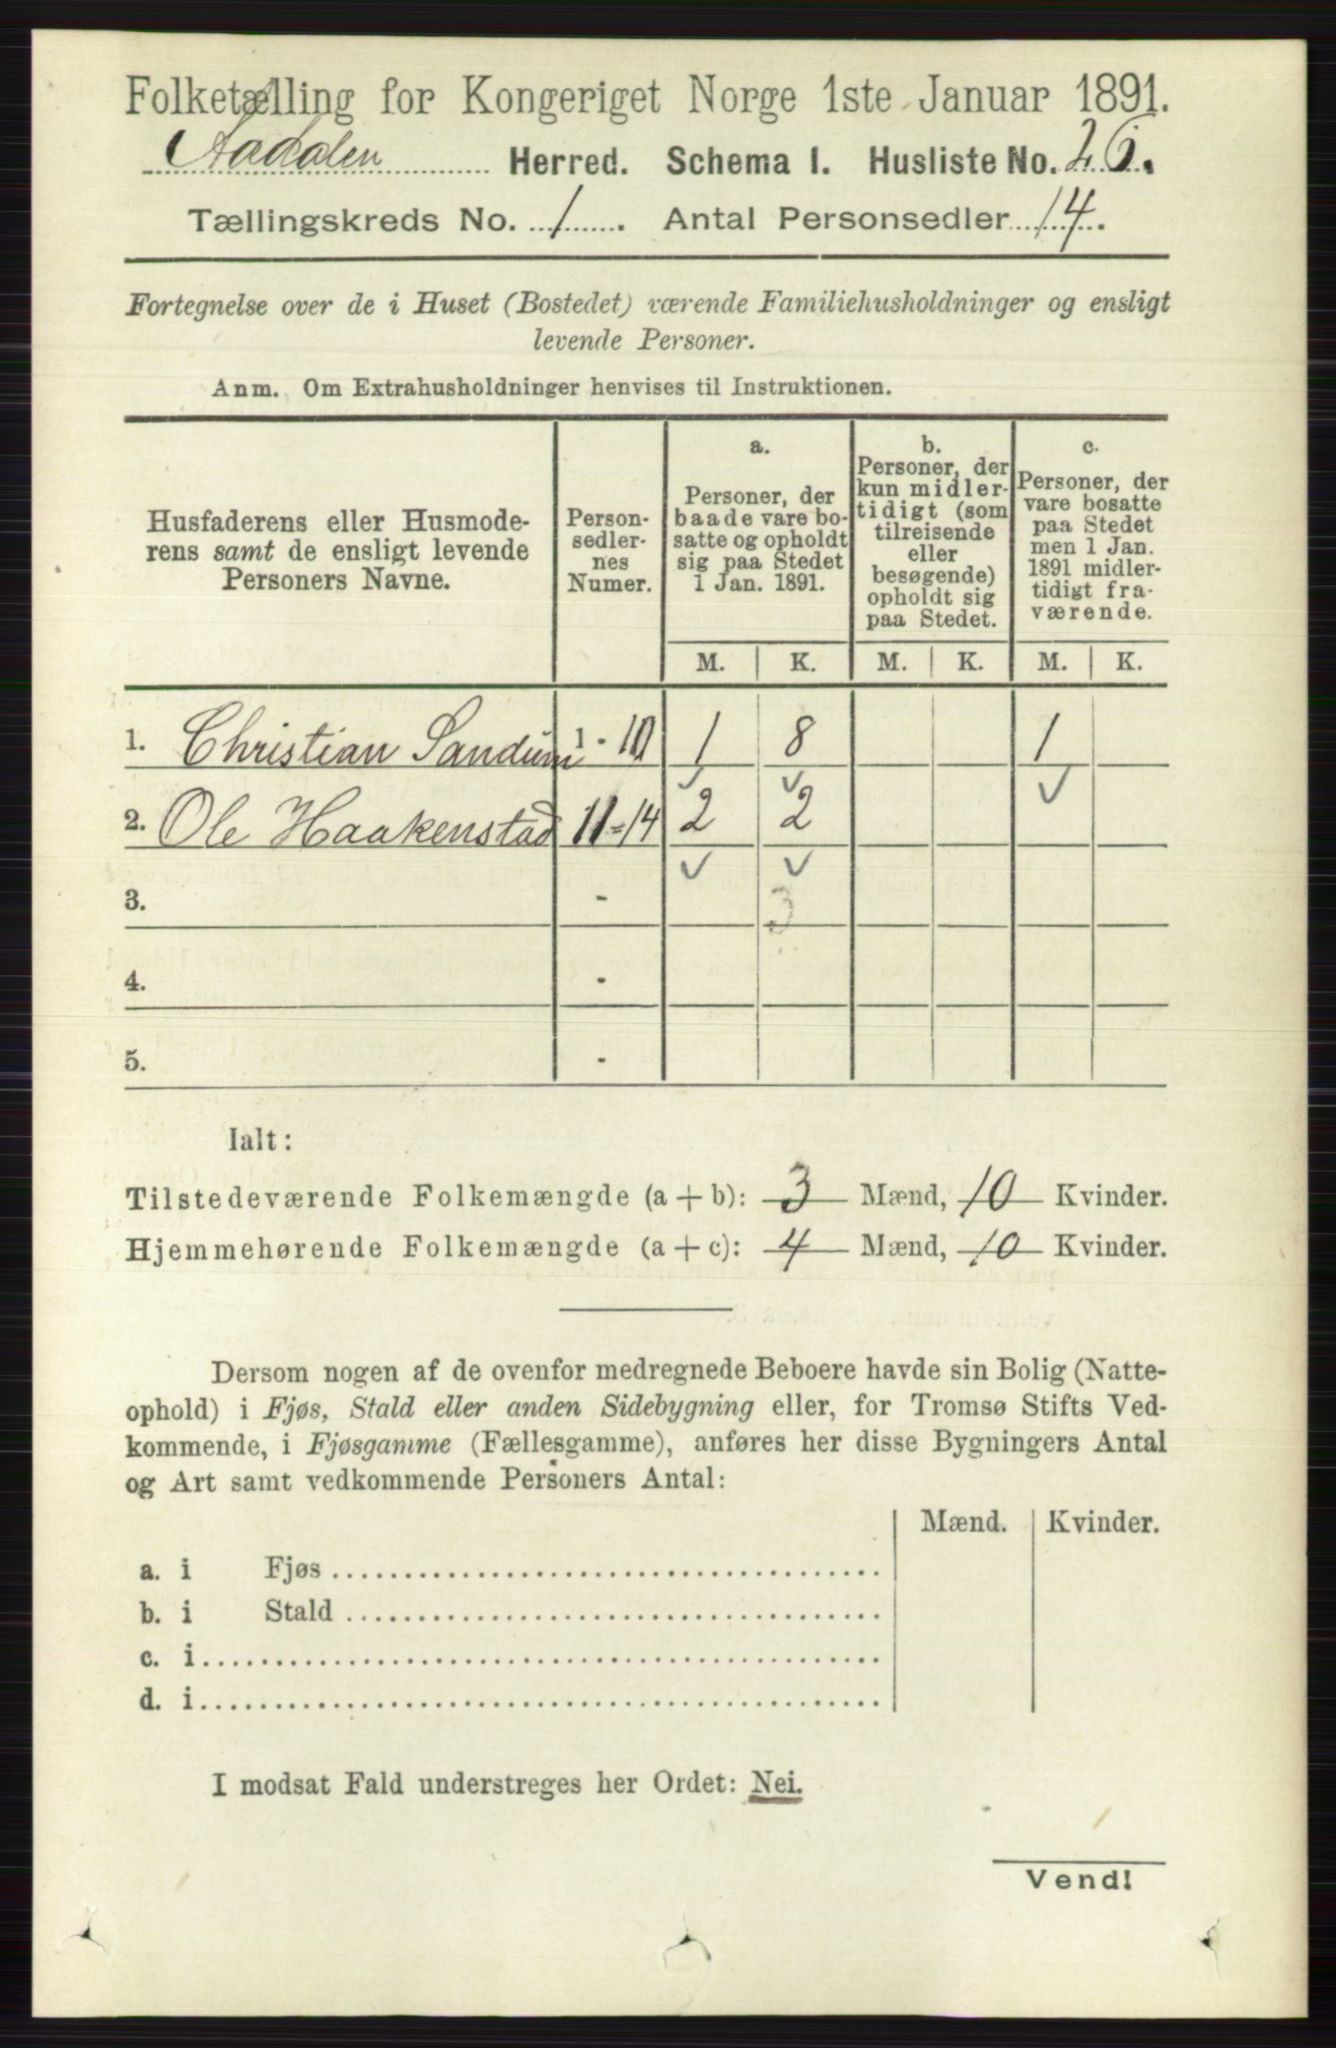 Folketælling for Kongeriget Norge 1ste Januar 1891.
Aadalen Herred. Schema I. Husliste No. 26.
Tællingskreds No. 1. Antal Personsedler 14.
Fortegnelse over de i Huset (Bostedet) værende Familiehusholdninger og ensligt
levende Personer.
Anm. Om Extrahusholdninger henvises til Instruktionen.
Husfaderens eller Husmode-
rens samt de ensligt levende
Personers Navne.
Person-
sedler-
nes
Numer.
a.
Personer, der
baade vare bo-
satte og opholdt
sig paa Stedet
1 Jan. 1891.
b.
Personer, der
kun midler-
tidigt (som
tilreisende
eller
besøgende)
opholdt sig
paa Stedet.
c.
Personer, der
vare bosatte
paa Stedet
men 1 Jan.
1891 midler-
tidigt fra-
værende.
M. K. M. K. M. K.
1. Christian Sandum 1 - 10 1 8 1
2. Ole Haakenstad 11 - 14 2 2
3. - 3
4. -
5. -
Ialt:
Tilstedeværende Folkemængde (a + b): 3 Mænd, 10 Kvinder.
Hjemmehørende Folkemængde (a + c): 4 Mænd, 10 Kvinder.
Dersom nogen af de ovenfor medregnede Beboere havde sin Bolig (Natte-
ophold) i Fjøs, Stald eller anden Sidebygning eller, for Tromsø Stifts Ved-
kommende, i Fjøsgamme (Fællesgamme), anføres her disse Bygningers Antal
og Art samt vedkommende Personers Antal:
Mænd. Kvinder.
a. i Fjøs
b. i Stald
c. i
d. i
I modsat Fald understreges her Ordet: Nei.
Vend!